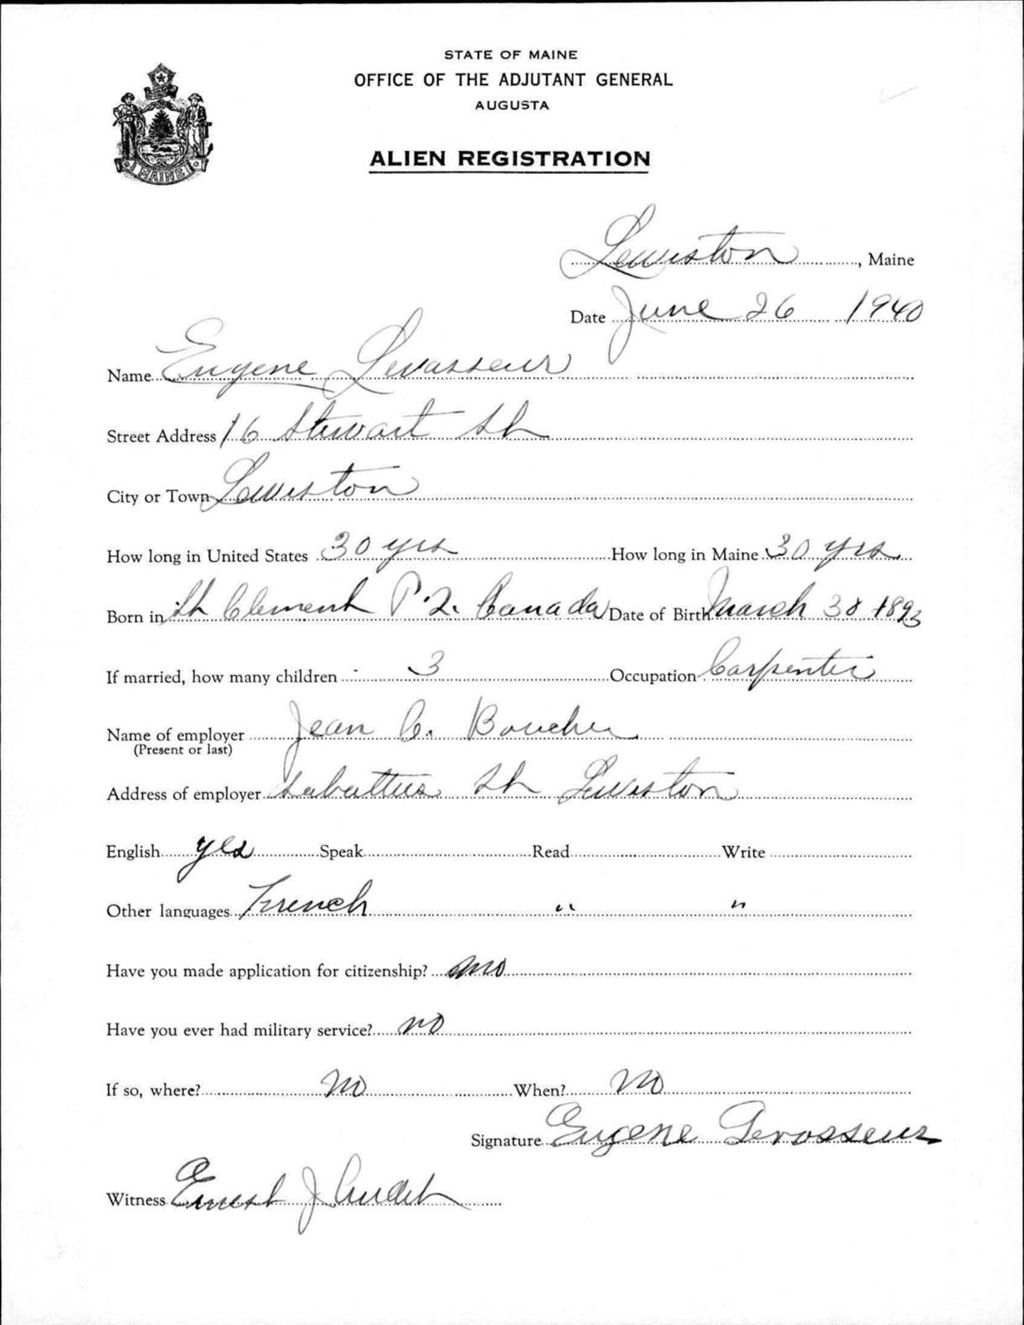 STATE OF MAINE
OFFICE OF THE ADJUTANT GENERAL
AUGUSTA
MAINE
ALIEN REGISTRATION
Lewiston, Maine
Date June 26 1940
Name Eugene Levasseur
Street Address 16 Stewart St
City or Town Lewiston
How long in United States 30 yrs How long in Maine 30 yrs
Born in St Clement P.Q. Canada Date of Birth March 30 1893
If married, how many children 3 Occupation Carpenter
Name of employer Jean C. Boucher
(Present or last)
Address of employer Sabattus St Lewiston
English yes Speak Read Write
Other languages French " "
Have you made application for citizenship? no
Have you ever had military service? no
If so, where? no When? no
Signature Eugene Levasseur
Witness Ernest J Audet